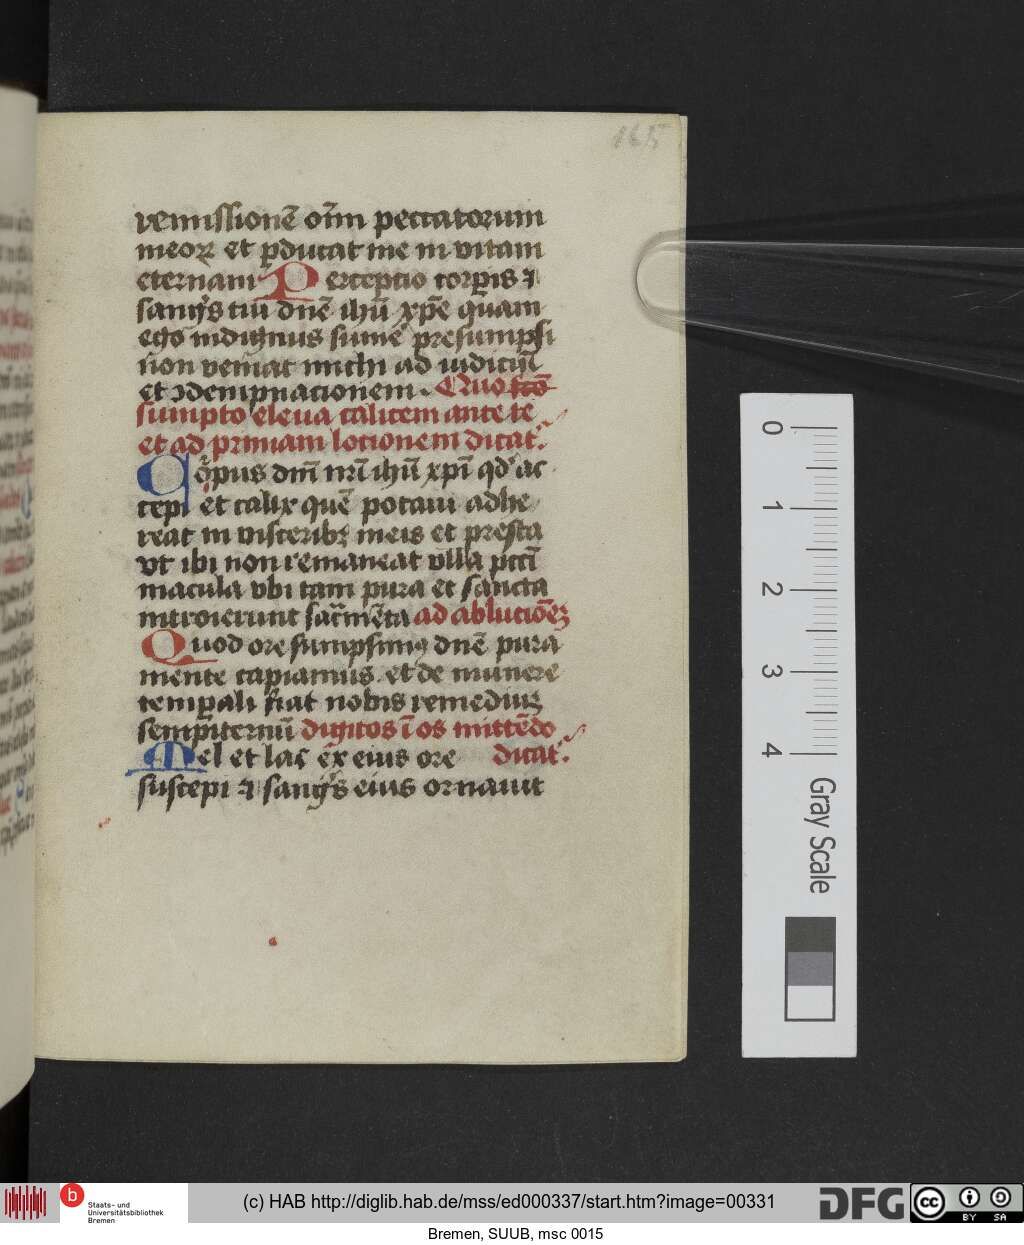 165
remissionē oīm peccatorum
meoꝝ et ꝑducat me in vitam
eternam Perceptio corꝑis ⁊
sangᷤs tui dnē ihū xp̄e quam
ego indignus sumē presumpsi
non veniat michi ad iudiciū
et ↄdempnacionem. Quo fc̄o
sumpto eleua calicem ante te
et ad primam locionem dicat:
Corpus dn̄i nr̄i ihū xp̄i qd̓ ac
cepi et calix quē potaui adhe
reat in visceribꝫ meis et presta
vt ibi non remaneat vlla pcc̄i
macula vbi tam pura et sancta
introierunt sac̄mēta ad ablucioēꝫ
Quod ore sumpsimꝰ dnē pura
mente capiamus et de munere
temꝑali fiat nobis remediuꝫ
sempiternū digitos ī os mittēdo
Mel et lac ex eius ore dicat:
suscepi ⁊ sangᷤs eius ornauit
0
1
2
3
4
Gray Scale
b
Staats- und
Universitätsbibliothek
Bremen
(c) HAB http://diglib.hab.de/mss/ed000337/start.htm?image=00331
DFG
cc BY SA
Bremen, SUUB, msc 0015